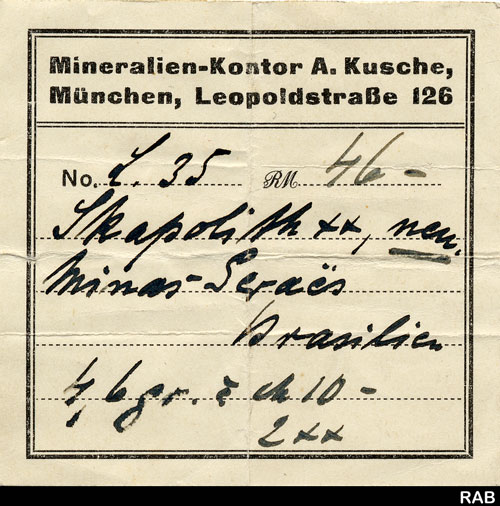 Mineralien-Kontor A. Kusche,
München, Leopoldstraße 126
No. L. 35 RM. 46-
Skapolith xx, neu.
Minas-Geraës
Brasilien
4,6 gr. à M 10-
2 xx
RAB